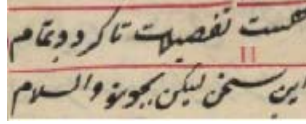 هست تفصیلات تا کردد تمام
این سخن لیکن بجو تو والسلام